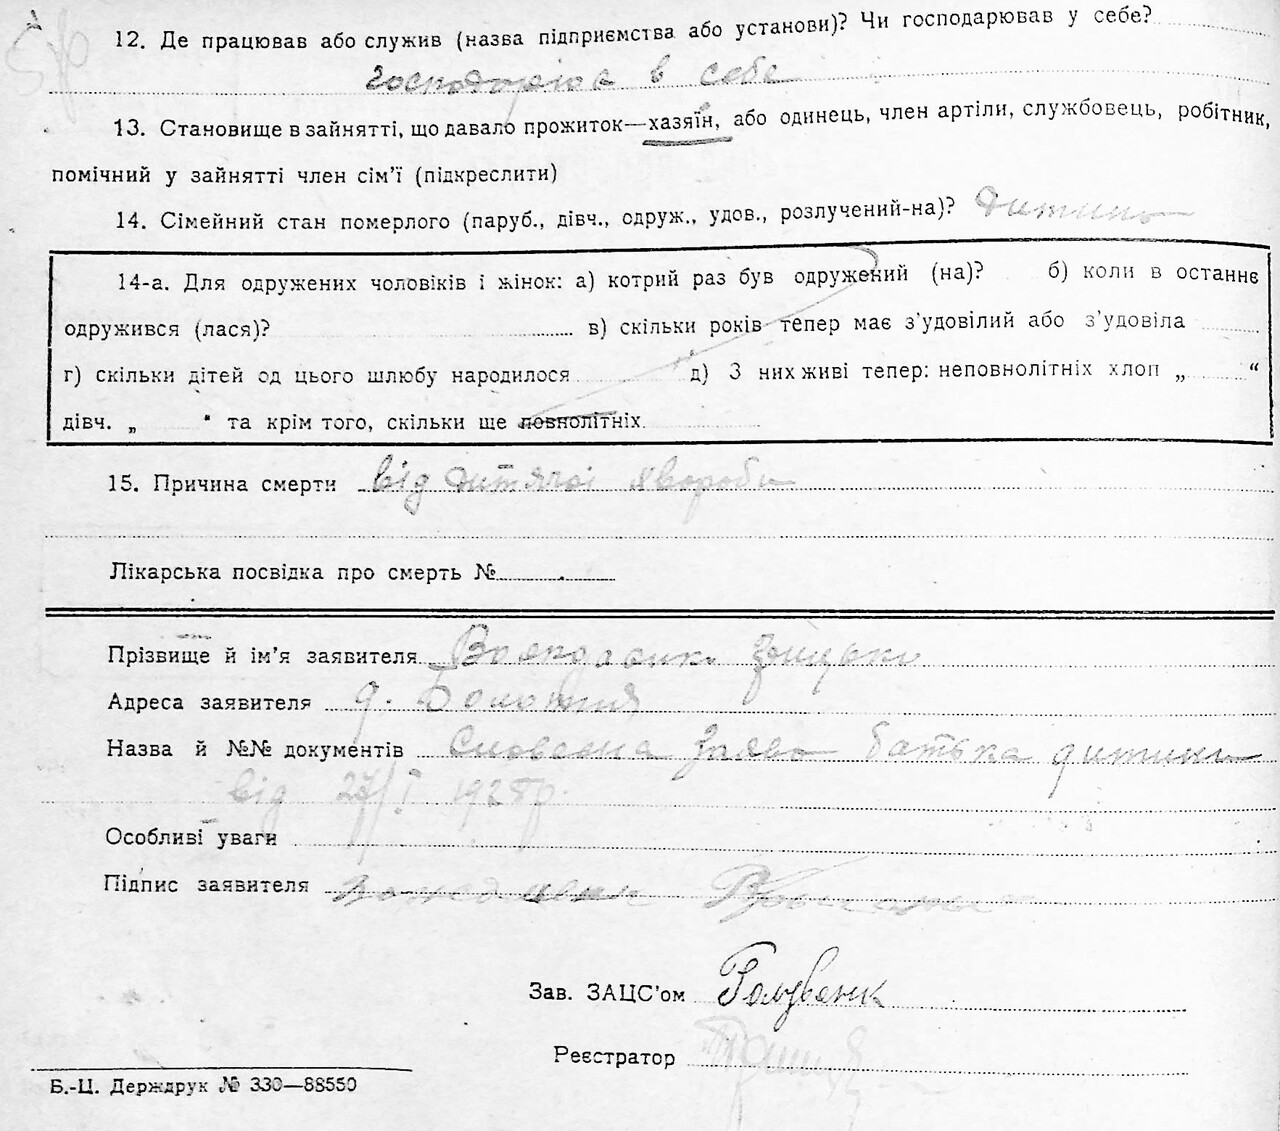 12. Де працював або служив (назва підприємства або установи)? Чи господарював у себе?
в себе
13. Становище в зайнятті, що давало прожиток—хазяїн, або одинець, член артіли, службовець, робітник,
помічний у зайнятті член сім’ї (підкреслити)
14. Сімейний стан померлого (паруб., дівч., одруж., удов., розлучений-на)? Дитина
14-а. Для одружених чоловіків і жінок: а) котрий раз був одружений (на)? б) коли в останнє
одружився (лася)? в) скільки років тепер має з’удовілий або з’удовіла
г) скільки дітей од цього шлюбу народилося д) З них живі тепер: неповнолітніх хлоп „ “
дівч. „ “ та крім того, скільки ще повнолітніх
15. Причина смерти від дитячої хвороби
Лікарська посвідка про смерть №
Прізвище й ім’я заявителя
Адреса заявителя
Назва й №№ документів Словесна заява батька дитини
від 27/I 1928р.
Особливі уваги
Підпис заявителя
Зав. ЗАЦС’ом
Реєстратор
Б.-Ц. Держдрук № 330—88550